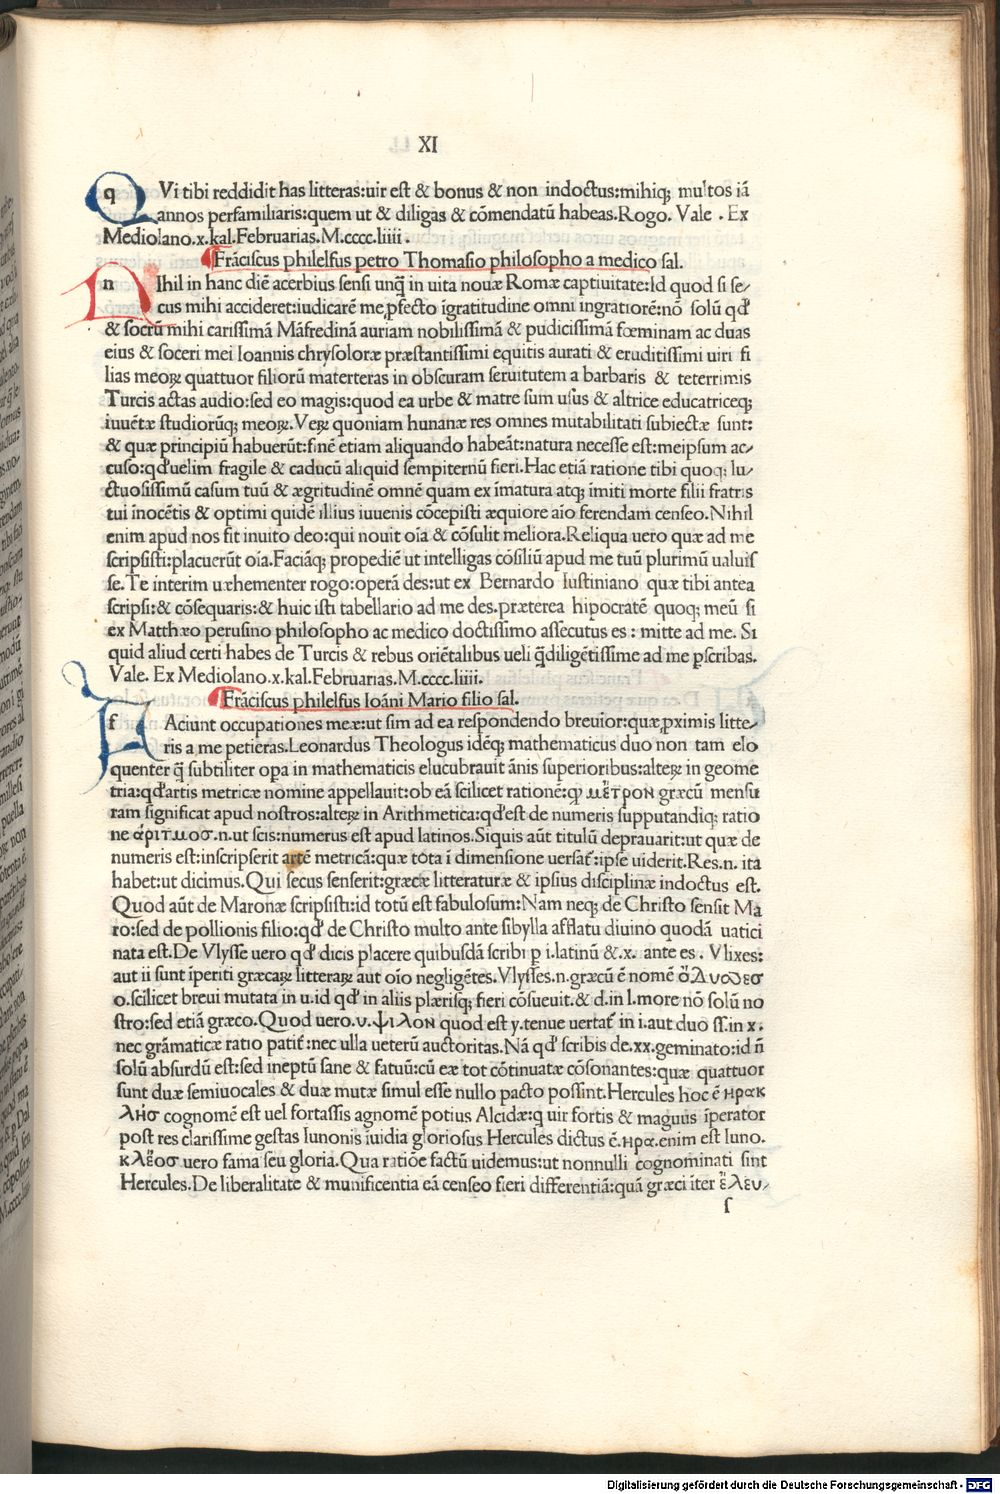 XI
qVi tibi reddidit has litteras:uir est & bonus & non indoctus:mihiq; multos iã
annos perfamiliaris:quem ut & diligas & cõmendatũ habeas.Rogo. Vale . Ex
Mediolano.x.kal.Februarias.M.cccc.liiii .
Frãciscus philelfus petro Thomasio philosopho a medico sal.
nIhil in hanc diẽ acerbius sensi unq̃ in uita nouæ Romæ captiuitate:Id quod si se/
cus mihi accideret:iudicarẽ me,ꝓfecto igratitudine omni ingratiorẽ:nõ solũ qđ
& socrũ mihi carissimã Mãfredinã auriam nobilissimã & pudicissimã fœminam ac duas
eius & soceri mei Ioannis chrysoloræ præstantissimi equitis aurati & eruditissimi uiri fi
lias meoꝝ quattuor filiorũ materteras in obscuram seruitutem a barbaris & teterrimis
Turcis actas audio:sed eo magis:quod ea urbe & matre sum usus & altrice educatriceq;
iuuẽtæ studiorũq; meoꝝ.Veꝝ quoniam humanæ res omnes mutabilitati subiectæ sunt:
& quæ principiũ habuerũt:finẽ etiam aliquando habeãt:natura necesse est:meipsum ac/
cuso:qđ uelim fragile & caducũ aliquid sempiternũ fieri.Hac etiã ratione tibi quoq; lu/
ctuosissimũ casum tuũ & ægritudinẽ omnẽ quam ex ĩmatura atq; ĩmiti morte filii fratris
tui ĩnocẽtis & optimi quidẽ illius iuuenis cõcepisti æquiore aĩo ferendam censeo.Nihil
enim apud nos fit inuito deo:qui nouit oĩa & cõsulit meliora.Reliqua uero quæ ad me
scripsisti:placuerũt oĩa.Faciãq; propediẽ ut intelligas cõsiliũ apud me tuũ plurimũ ualuis
se.Te interim uæhementer rogo:operã des:ut ex Bernardo Iustiniano quæ tibi antea
scripsi:& cõsequaris:& huic isti tabellario ad me des.præterea hipocratẽ quoq; meũ si
ex Matthæo perusino philosopho ac medico doctissimo assecutus es : mitte ad me. Si
quid aliud certi habes de Turcis & rebus oriẽtalibus ueli q̃diligẽtissime ad me ꝑscribas.
Vale. Ex Mediolano.x.kal.Februarias.M.cccc.liiii.
Frãciscus philelfus Ioãni Mario filio sal.
fAciunt occupationes meæ:ut sim ad ea respondendo breuior:quæ ꝓximis litte/
ris a me petieras.Leonardus Theologus idẽq; mathematicus duo non tam elo
quenter q̃ subtiliter opa in mathematicis elucubrauit ãnis superioribus:alteꝝ in geome
tria:qđ artis metricæ nomine appellauit:ob eã scilicet rationẽ:qꝫ μέτρον græcũ mensu
ram significat apud nostros:alteꝝ in Arithmetica:qđ est de numeris supputandiq; ratio
ne ἀριτμοσ.n.ut scis:numerus est apud latinos.Siquis aũt titulũ deprauarit:ut quæ de
numeris est:inscripserit artẽ metricã:quæ tota ĩ dimensione uersat̃:ipse uiderit.Res.n. ita
habet:ut dicimus.Qui secus senserit:græcæ litteraturæ & ipsius disciplinæ indoctus est.
Quod aũt de Maronæ scripsisti:id totũ est fabulosum:Nam neq; de Christo sensit Ma
ro:sed de pollionis filio:qđ de Christo multo ante sibylla afflatu diuino quodã uatici
nata est.De Vlysse uero qđ dicis placere quibusdã scribi ꝑ i.latinũ & .x. ante es . Vlixes:
aut ii sunt ĩperiti græcaꝝ litteraꝝ aut oĩo negligẽtes.Vlysses.n.græcũ ẽ nomẽ ὀΔυσσεσ
o.scilicet breui mutata in u.id qđ in aliis plærisq; fieri cõsueuit.& d.in l.more nõ solũ no
stro:sed etiã græco.Quod uero.υ.ψιλον quod est y.tenue uertat̃ in i.aut duo ss.in x.
nec grãmaticæ ratio patit̃:nec ulla ueterũ auctoritas.Nã qđ scribis de.xx.geminato:id ñ
solũ absurdũ est:sed ineptũ sane & fatuũ:cũ eæ tot cõtinuatæ cõsonantes:quæ quattuor
sunt duæ semiuocales & duæ mutæ simul esse nullo pacto possint.Hercules hoc ẽ ηρακ
λησ cognomẽ est uel fortassis agnomẽ potius Alcidæ:q uir fortis & magnus ĩperator
post res clarissime gestas Iunonis ĩuidia gloriosus Hercules dictus ẽ.ηρα.enim est Iuno.
κλεοσ uero fama seu gloria.Qua ratiõe factũ uidemus:ut nonnulli cognominati sint
Hercules.De liberalitate & munificentia eã censeo fieri differentiã:quã græci iter ἐλευ/
f
Digitalisierung gefördert durch die Deutsche Forschungsgemeinschaft - DFG